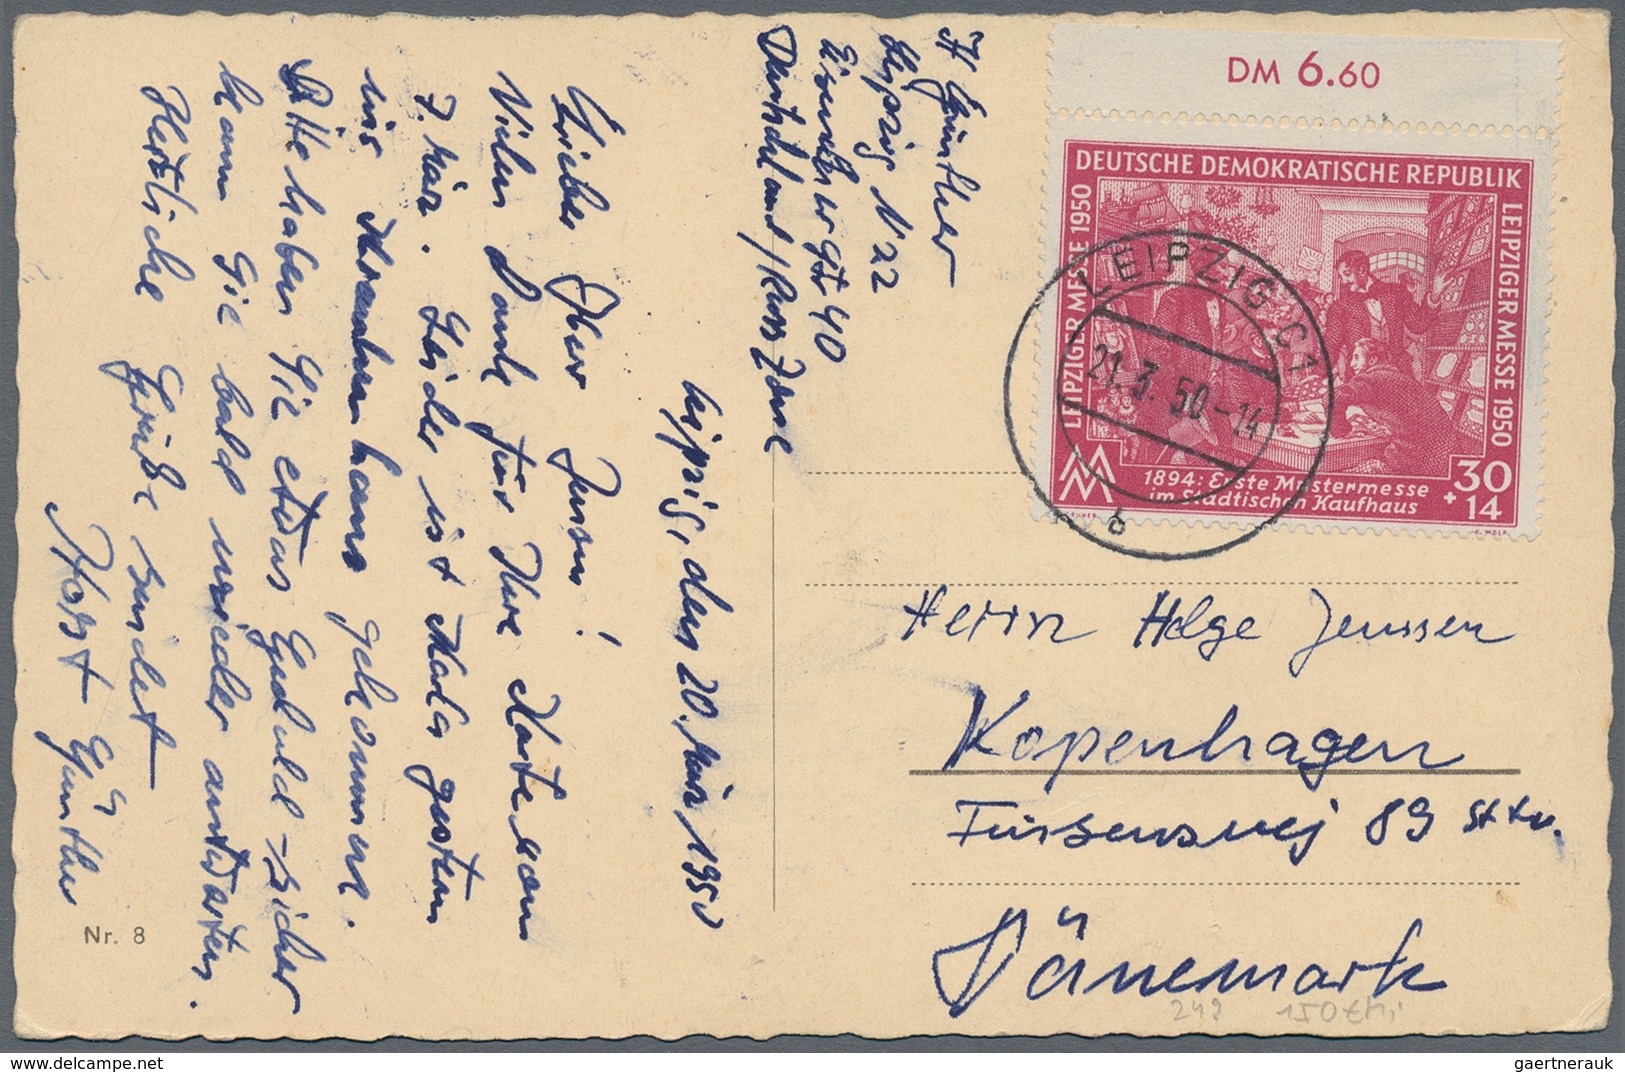 H Günther
Leipzig N 22
40
Deutschland / Russ Zone
Leipzig, den 20. März 1950
Lieber Herr Jensen!
Vielen Dank für Ihre Karte vom
7. März. Leider ist gestern
ins Krankenhaus gekommen.
Bitte haben Sie etwas Geduld - sicher
kann Sie bald wieder antworten.
Herzliche Grüße sendet
Horst Günther
Nr. 8
DM 6.60
DEUTSCHE DEMOKRATISCHE REPUBLIK
LEIPZIGER MESSE 1950
LEIPZIGER MESSE 1950
1894: Erste Mustermesse
im städtischen Kaufhaus
30
+ 14
LEIPZIG C1
21.3.50-14
b
Herrn Helge Jenssen
Kopenhagen
89
Dänemark
249 150€Mi
gaertnerauk